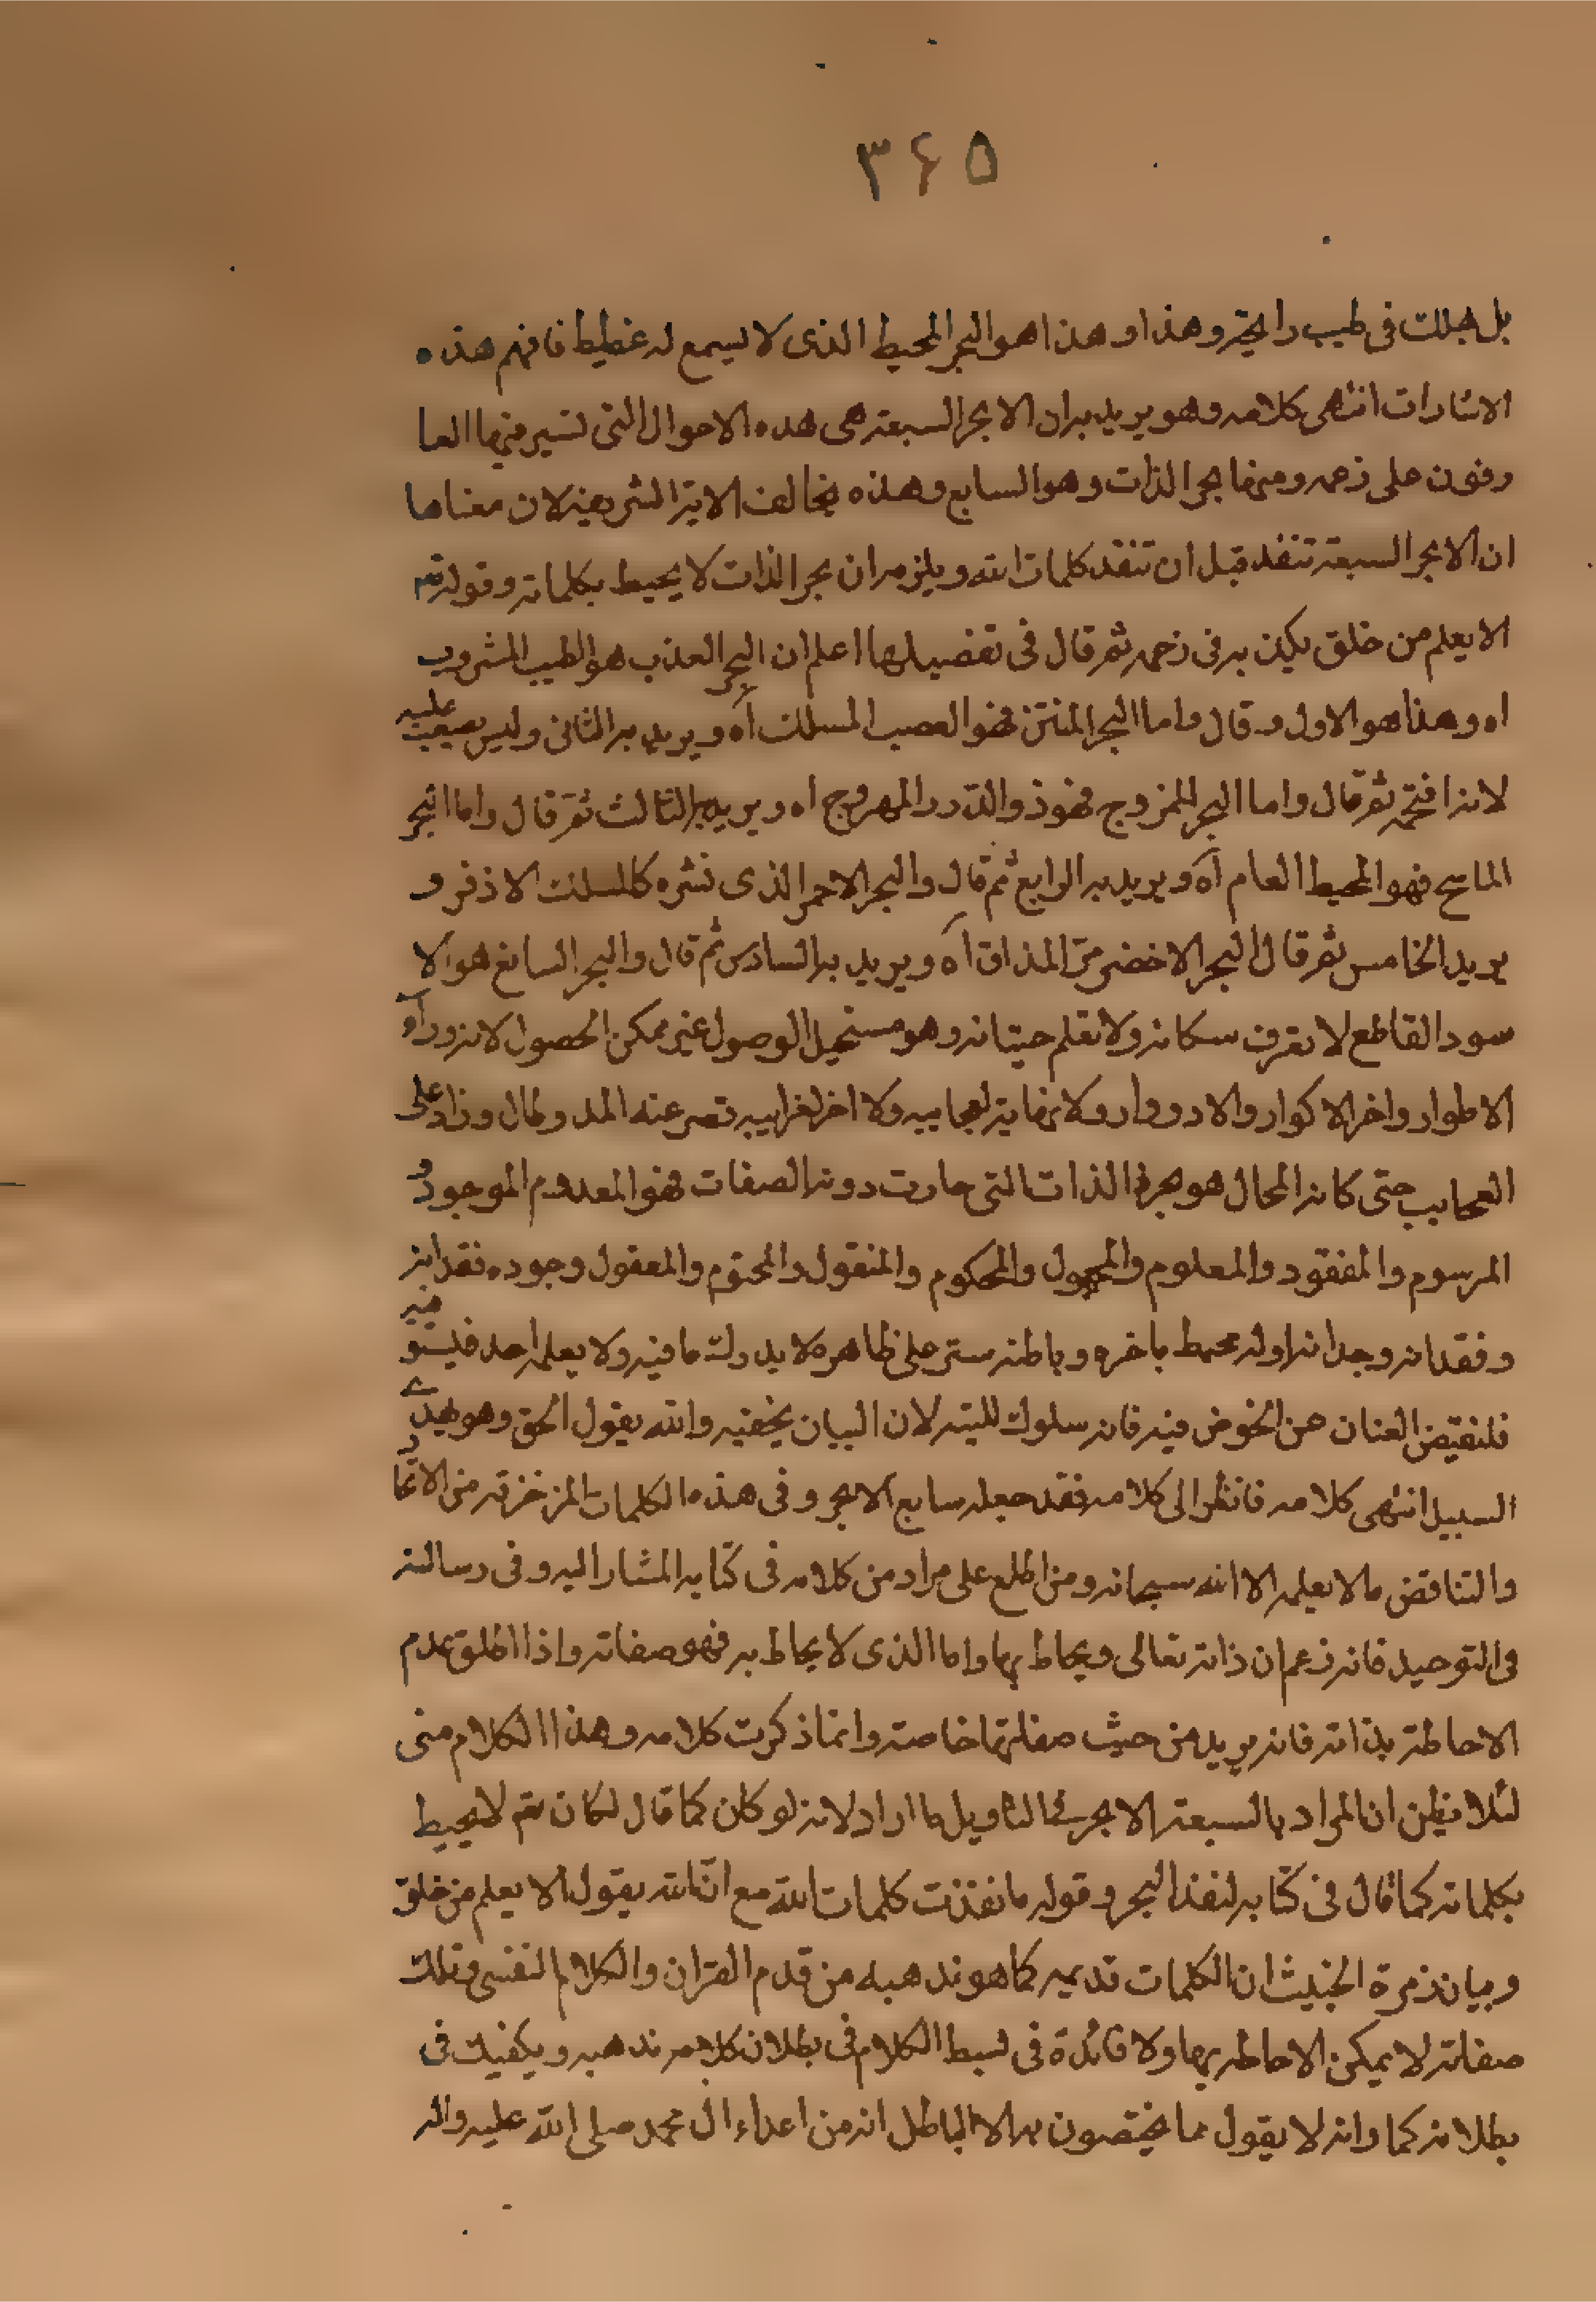 ٣۶۵
بل هلك في طيب رايحته وهذا وهذا هو البحر المحيط الذى لا يسمع له غطيط فافهم هذه
الاشارات انتهى كلامه وهو يريد به ان الابحر السبعة هى هذه الاحوال التى تسير فيها العا
رفون على زعمه ومنها بحر الذات وهو السابع وهذه يخالف الاية الشريفة لان معناها
ان الابحر السبعة تنفد قبل ان تنفد كلمات الله ويلزمه ان بحر الذات لا يحيط بكلماته وقوله تعم
الا يعلم من خلق يكذبه فى زعمه ثم قال فى تفصيلها اعلم ان البحر العذب هو الطيب المشروب
اه وهذا هو الاول وقال واما البحر المنتن فهو الصعب المسلك آه ويريد به الثانى وليس بصعب عليه
لانه افتحمه ثم قال واما البحر الممزوج فهو ذو الدرر المهروج اه ويريد به الثالث ثم قال واما البحر
المالح فهو المحيط العام آه ويريد به الرابع ثم قال والبحر الاحمر الذى نشره كالمسك الاذفر و
يريد الخامس ثم قال البحر الاخضر مرّ المذاق آه ويريد به السادس ثم قال والبحر السابع هو الا
سود القاطع لا تعرف سكانه ولا تعلم حيتانه وهو مستحيل الوصول غير ممكن الحصول لانه وراء
الاطوار واخر الاكوار والادوار ولا نهاية لعجايبه ولا اخر لغرايبه قصر عنه المد وطال وزاد على
العجايب حتى كانه المحال هو بحر الذات التى حارت دونه الصفات فهو المعدوم الموجود و
المرسوم والمفقود والمعلوم والمجهول والمحكوم والمنقول والمحتوم والمعقول وجوده فقدانه
وفقدانه وجدانه اوله محيط باخره وباطنه ستر على ظاهره لا يدرك ما فيه ولا يعلمه احد فيستوفيه
فلنقبض العنان عن الخوض فيه فانه سلوك لليته لان البيان يخفيه والله يقول الحق وهو يهدى
السبيل انتهى كلامه فانظر الى كلامه فقد جعله سابع الابحر وفى هذه الكلمات المزخرفة من الاتحاد
والتناقض ما لا يعلمه الا الله سبحانه ومن اطلع على مراد من كلامه فى كتابه المشار اليه وفى رسالته
فى التوحيد فانه زعم ان ذاته تعالى ويحاط بها واما الذى لا يحاط به فهو صفاته واذا اطلق عدم
الاحاطة بذاته فانه يريد من حيث صفاتها خاصة وانما ذكرت كلامه وهذا الكلام منى
لئلا يظن ان المراد بالسبعة الابحر فى التاويل ما اراد لانه لو كان كما قال لكان تعم لا يحيط
بكلماته كما قال فى كتابه لنفد البحر وقوله ما نفذت كلمات الله مع ان الله يقول الا يعلم من خلق
وبيان زمرة الخبيث ان الكلمات قديمه كما هو مذهبه من قدم القران والكلام النفسى وتلك
صفاته لا يمكن الاحاطه بها ولا فائدة فى بسط الكلام فى بطلان كلامه ومذهبه ويكفيك فى
بطلانه كما وانه لا يقول مما يختصون به الا الباطل انه من اعداء ال محمد صلى الله عليه واله